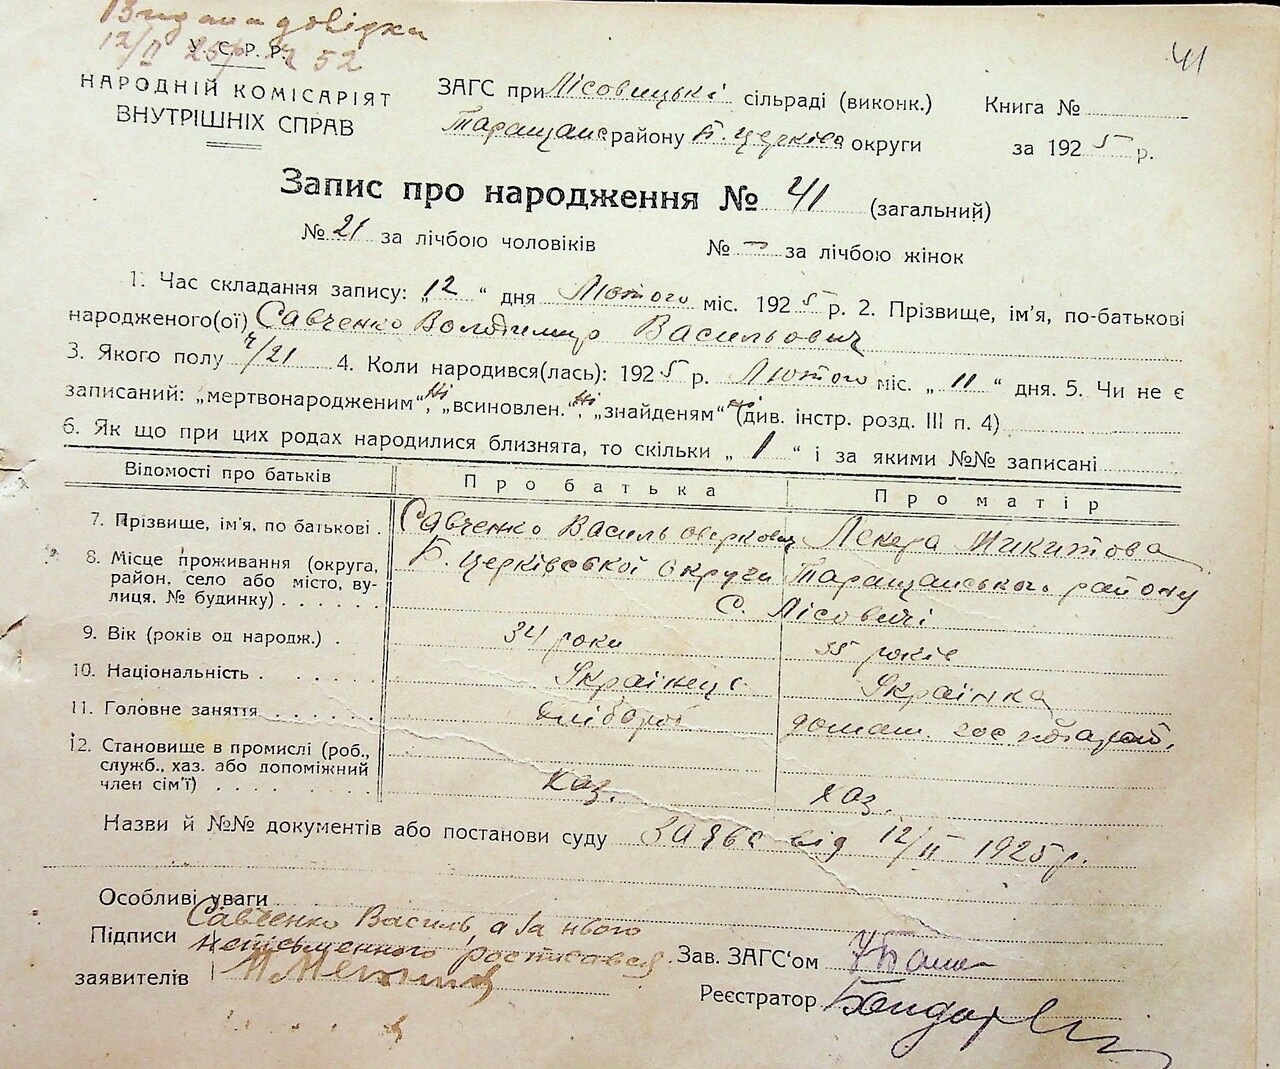 Видана довідка
12/II 25р Ч 52
У. С. Р. Р.
НАРОДНІЙ КОМІСАРІЯТ
ВНУТРІШНІХ СПРАВ
41
ЗАГС при Лісовицькі сільраді (виконк.) Книга №
Таращанс району Б. церків округи за 1925 р.
Запис про народження № 41 (загальний)
№ 21 за лічбою чоловіків № — за лічбою жінок
1. Час складання запису: „12“ дня Лютого міс. 1925 р. 2. Прізвище, ім'я, по-батькові
народженого(ої) Савченко Володимир Васильович
3. Якого полу ч/21 4. Коли народився(лась): 1925 р. Лютого міс. „11“ дня. 5. Чи не є
записаний: „мертвонародженим“ Ні, „всиновлен.“ Ні, „знайденям“ Ні (див. інстр. розд. III п. 4)
6. Як що при цих родах народилися близнята, то скільки „1“ і за якими №№ записані
Відомості про батьків Про батька Про матір
7. Прізвище, ім'я, по батькові . Савченко Василь Микитова
8. Місце проживання (округа, район, село або місто, ву-
лиця, № будинку) . . . . . . Б. Церківської округи Таращанського району
С. Лісовичі
9. Вік (років од народж.) . 34 роки 35 років
10. Національність . . . . . . Українец. Українка
11. Головне заняття . . . . . . хлібороб домаш. господарст.
12. Становище в промислі (роб.,
служб., хаз. або допоміжний
член сім'ї) . . . . . . . . хаз. хаз.
Назви й №№ документів або постанови суду Заява від 12/II 1925 р.
Особливі уваги
Підписи заявителів Савченко Василь, а за нього
неписьменного росписався
Зав. ЗАГС'ом
Реєстратор